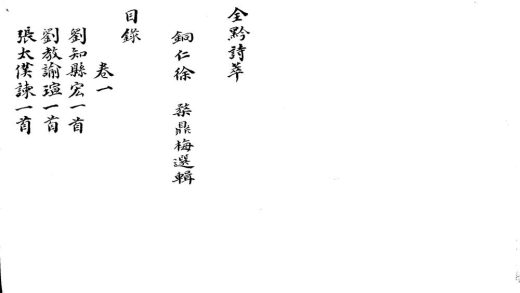 全黔詩萃
銅仁徐 棻鼎梅選輯
目錄
卷一
劉知縣宏一首
劉教諭瑄一首
張太僕諫一首